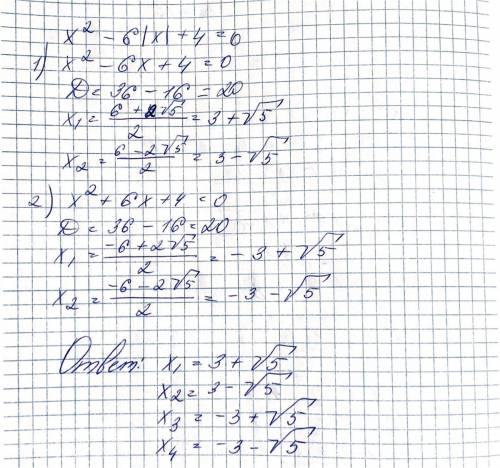 x² - 6|x| + 4 = 0
1) x² - 6x + 4 = 0
D = 36 - 16 = 20
x₁ = (6 + 2√5)/2 = 3 + √5
x₂ = (6 - 2√5)/2 = 3 - √5
2) x² + 6x + 4 = 0
D = 36 - 16 = 20
x₁ = (-6 + 2√5)/2 = -3 + √5
x₂ = (-6 - 2√5)/2 = -3 - √5
Ответ: x₁ = 3 + √5
x₂ = 3 - √5
x₃ = -3 + √5
x₄ = -3 - √5